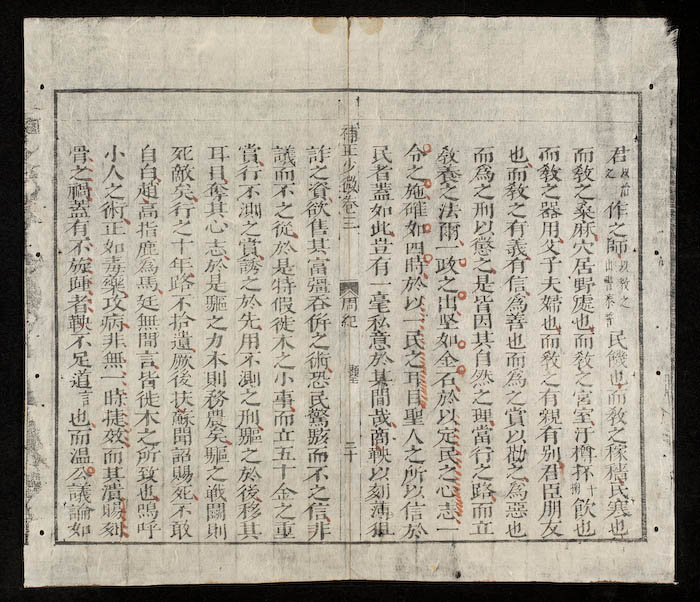 君以治之作之師以敎之出書泰誓民饑也而敎之稼穡民寒也
而敎之桑麻穴居野處也而敎之宮室汙樽抔飮也
而敎之器用父子夫婦也而敎之有親有別君臣朋友
也而敎之有義有信為善也而為之賞以勸之為惡也
而為之刑以懲之是皆因其自然之理當行之路而立
敎養之法爾一政之出堅如金石於以定民之心志一
令之施確如四時於以一民之耳目聖人之所以信於
民者蓋如此豈有一毫私意於其間哉商鞅以刻薄狙
補正少微卷三 周紀 三十
詐之資欲售其富彊吞倂之術恐民驚駭而不之信非
議而不之從於是特假徙木之小事而立五十金之重
賞行不測之賞誘之於先用不測之刑驅之於後移其
耳目奪其心志於是驅之力本則務農矣驅之戰鬪則
死敵矣行之十年路不拾遺厥後扶蘇聞詔賜死不敢
自白趙高指鹿為馬廷無閒言皆徙木之所致也嗚呼
小人之術正如毒藥攻病非無一時捷效而其潰膓刻
骨之禍蓋有不旋踵者鞅不足道也而温公議論如